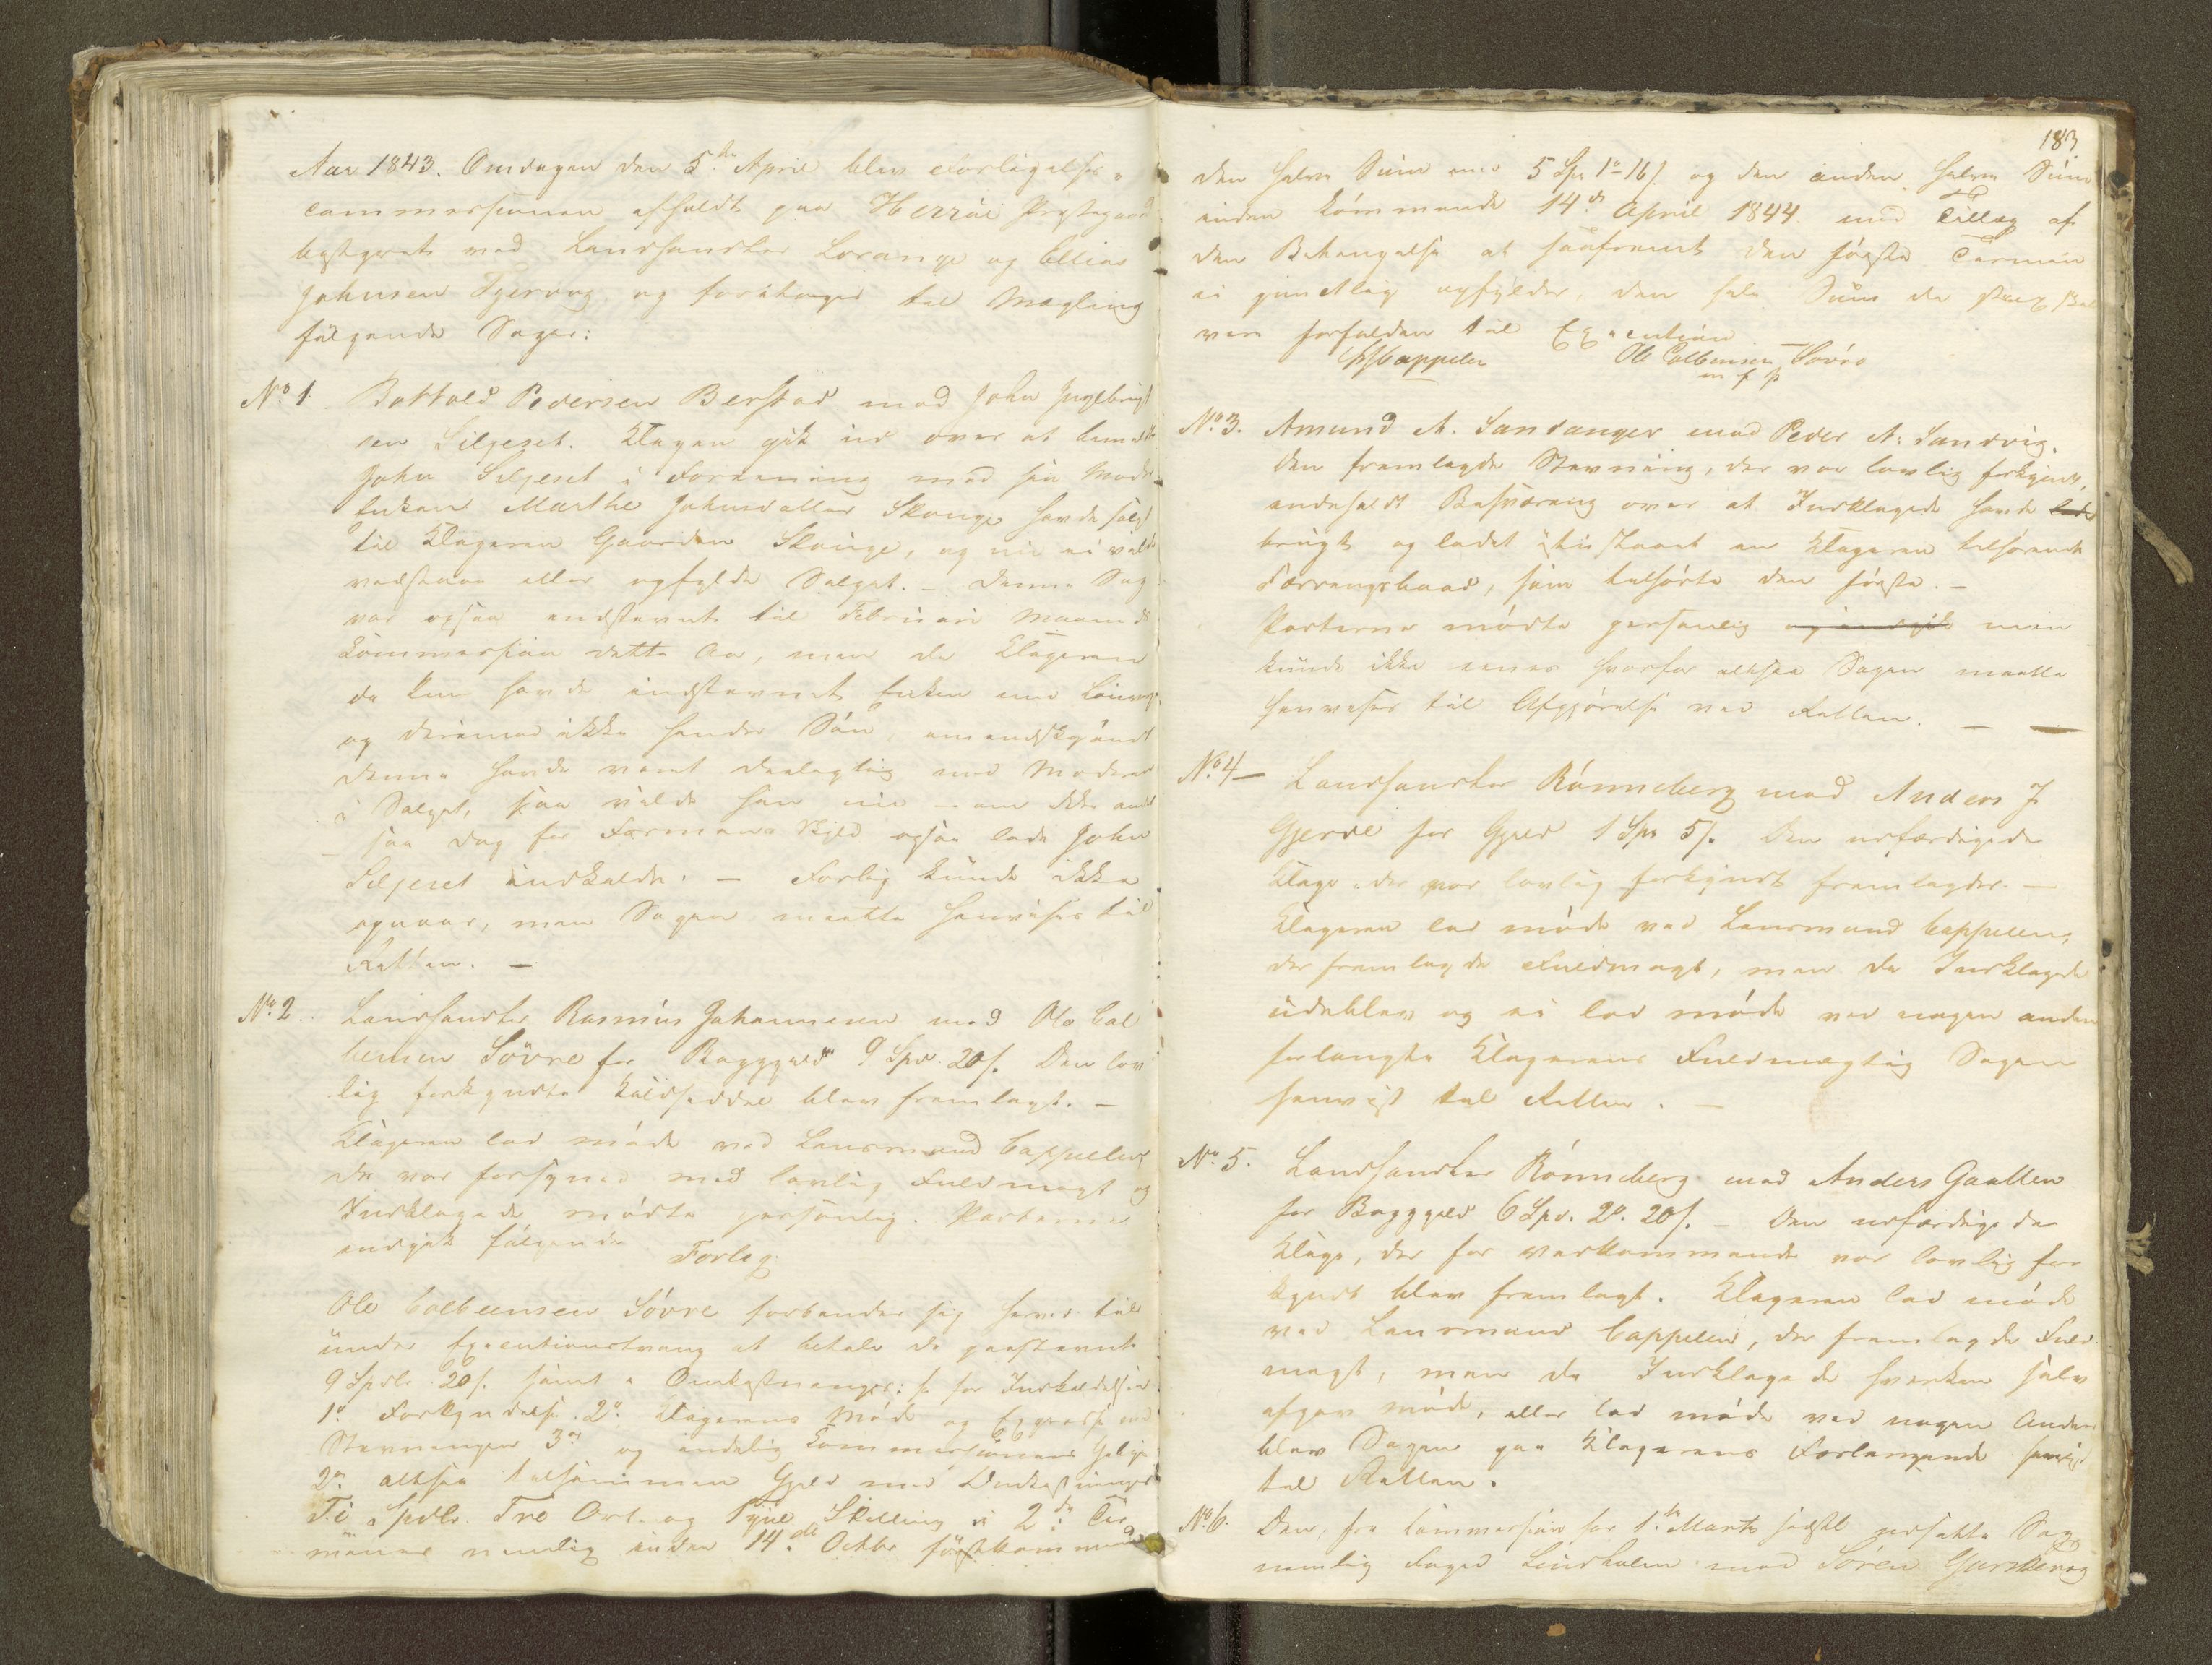 Aar 1843. Onsdagen den 5te April blev Forligelses-
commissionen afholdt paa Herröe Præstegaard
bestyret ved Landhandler Lorange og Ellias
Johnsen Tjervaag og foretaget til Mægling
følgende Sager:
No 1. Botholv Pedersen Berstad mod John Ingebrigt
sen Siljeset. Klagen gik ud over at bemeldte
John Siljeset i Forening med sin Moder
Enken Marthe Johnsdatter Skouge havde solgt
til Klageren Gaarden Skouge, og nu ei vilde
vedstaae eller opfylde Salget. – Denne Sag
var ogsaa indstevnet til Februari Maaneds
Commission dette Aar, men da Klageren
da kun havde indstevnet Enken
og derimod ikke hendes Søn, omendskjøndt
denne havde været deelagtig med Moderen
i Salget, saa vilde han nu – om ikke andet
saa dog for Formens Skyld ogsaa lade John
Siljeset indkalde. – Forlig kunde ikke
opnaaes, men Sagen maatte henvises til
Retten. –
No 2. Landhandler Rasmus Johannesen mod Ole Col
bensen Sövre for Boggjæld 9 Spd. 20 s. Den lov
lig forkyndte Kaldseddel blev fremlagt. –
Klageren lod møde ved Lensmand Cappelen
der var forsynet med lovlig Fuldmagt og
Indklagede mødte personlig. Parterne
indgik følgende Forlig:
Ole Colbeensen Sövre forbinder sig herved til
under Executionstvang at betale de paastevnte
9 Spdlr. 20 s. samt i Omkostninger: for Indkaldelsen
1 o: Forkyndelse 2 o: Klagerens Møde og Expresse med
Stevningen 3 o: og endelig Commissionens Gebyr
2 o: altsaa tilsammen Gjæld med Omkostninger
Ti Spdlr. Tre Ort og Tyve Skilling i 2de Ter
miner nemlig inden 14de Octbr førstkommende
183
den halve Sum med 5 Spd 1 o 16 s. og den anden halve Sum
inden kommende 14de April 1844 med Tillæg af
den Betingelse at saafremt den første Termin
ei punctlig opfyldes, den hele Sum da strax skal
være forfalden til Execution
Cappelen Ole Colbensen Sövre
m f p
No 3. Amund A. Sandanger mod Peder A. Sandvig.
Den fremlagde Stevning, der var lovlig forkyndt,
indeholdt Besværing over at Indklagede havde
brugt og ladet en Klageren tilhørende
Færringsbaad, som tilhørte den første. –
Parterne mødte personlig og indgik men
kunde ikke enes hvorfor altsaa Sagen maatte
henvises til Afgjørelse ved Retten. –
No 4 – Landhandler Rönneberg mod Anders J.
Gjerde for Gjæld 1 Spd 5 s. Den udfærdigede
Klage der var lovlig forkyndt fremlagdes. –
Klageren lod møde ved Lensmand Cappelen,
der fremlagde Fuldmagt, men da Indklagede
udeblev og ei lod møde ved nogen anden
forlangte Klagerens Fuldmægtig Sagen
henvist til Retten. –
No 5. Landhandler Rönneberg mod Anders Gaatten
for Boggjæld 6 Spd. 2 o. 20 s. – Den udfærdigede
Klage, der for vedkommende var lovlig for
kyndt blev fremlagt. Klageren lod møde
ved Lensmand Cappelen, der fremlagde Fuld-
magt, men da Indklagede hverken selv
afgav møde, eller lod møde ved nogen Anden
blev Sagen paa Klagerens Forlangende henvist
til Retten.
No 6. Den, fra Commission for 1ste Marts sidstl udsatte Sag
nemlig Foged Lindholm mod Sören Gurskevog